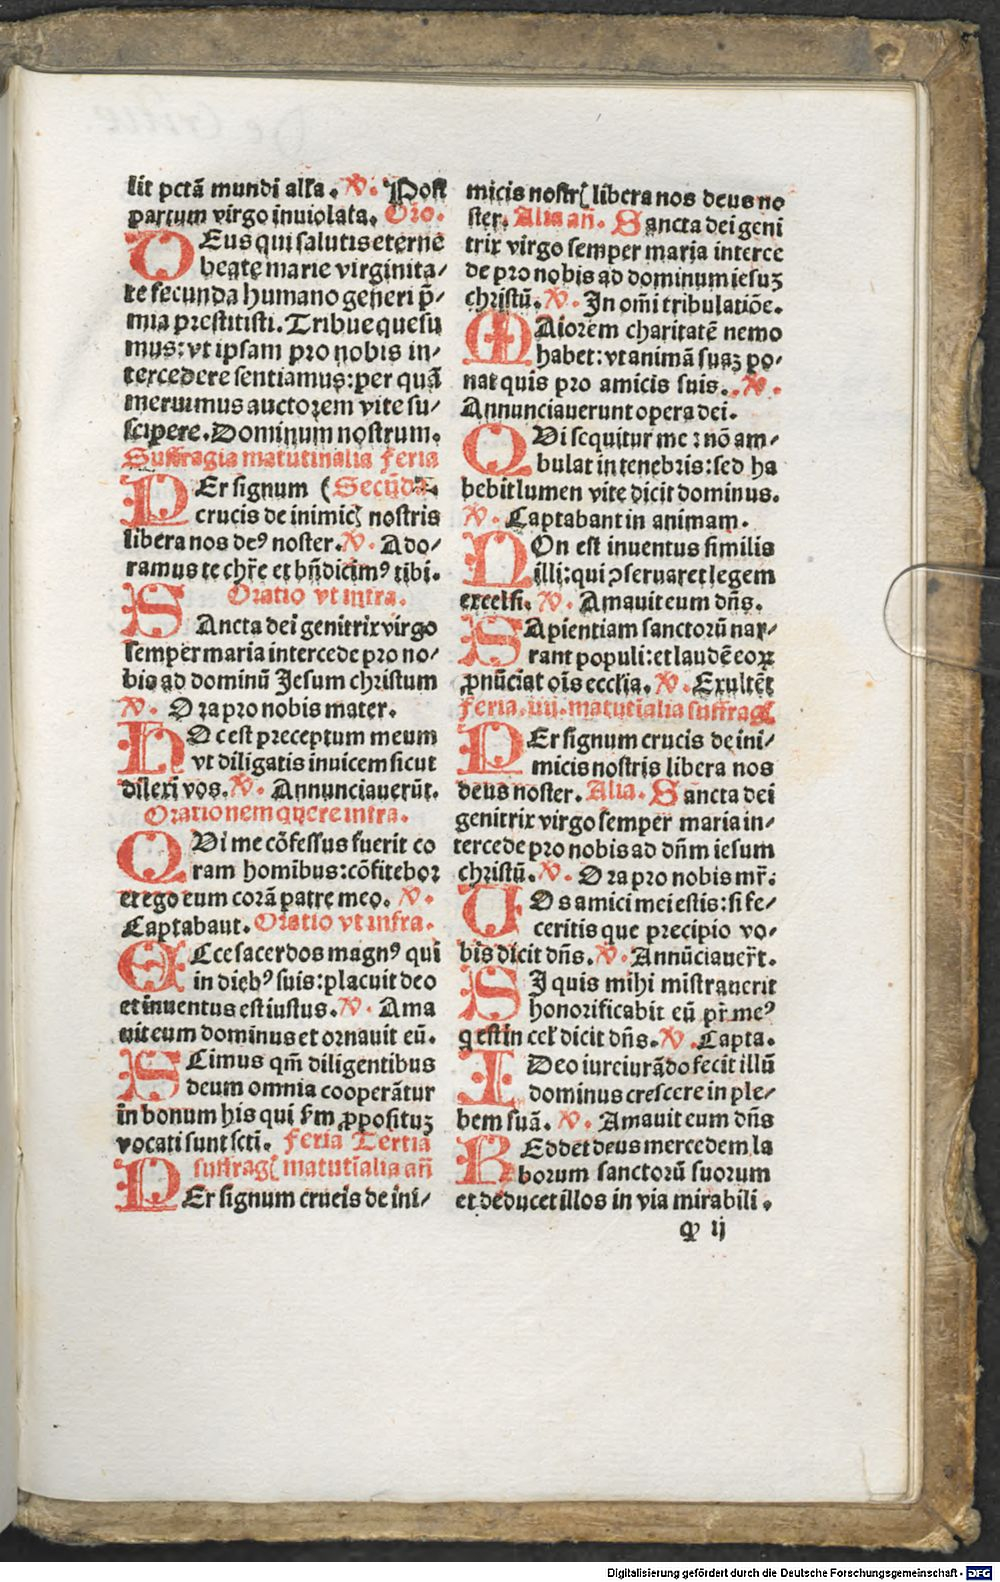 lit pctā mundi alľa. V. Post
partum virgo inuiolata. Oro.
DEus qui salutis eterne
beate marie virginita/
te fecunda humano generi p̄/
mia prestitisti. Tribue quesu
mus: vt ipsam pro nobis in/
tercedere sentiamus: per quā
meruimus auctorem vite su/
scipere. Dominum nostrum.
Suffragia matutinalia feria
PEr signum (Secūda.
crucis de inimicꝭ nostris
libera nos deꝰ noster. V. Ado/
ramus te chr̄e et bn̄dicimꝰ tibi.
Oratio vt infra.
SAncta dei genitrix virgo
semper maria intercede pro no/
bis ad dominū Jesum christum
V. Ora pro nobis mater.
HOc est preceptum meum
vt diligatis inuicem sicut
dilexi vos. V. Annunciauerūt.
Orationem quere infra.
QVi me cōfessus fuerit co
ram hominibus: cōfitebor
et ego eum corā patre meo. V.
Captabaut. Oratio vt infra.
ECce sacerdos magnꝰ qui
in diebꝰ suis: placuit deo
et inuentus est iustus. V. Ama
uit eum dominus et ornauit eū.
SCimus qm̄ diligentibus
deum omnia cooperātur
in bonum his qui s̄m ꝓposituꝫ
vocati sunt scti. feria Tertia
suffragꝭ matutīalia an̄
PEr signum crucis de ini/
micis nostrꝭ libera nos deus no
ster. Alia an̄. Sancta dei geni
trix virgo semper maria interce
de pro nobis ad dominum iesuꝫ
christū. V. In om̄i tribulatiōe.
MAiorem charitatē nemo
habet: vt animā suaꝫ po/
nat quis pro amicis suis. V.
Annunciauerunt opera dei.
QVi sequitur me ꝛ nō am/
bulat in tenebris: sed ha
bebit lumen vite dicit dominus.
V. Captabant in animam.
NOn est inuentus similis
illi: qui ꝯseruaret legem
excelsi. V. Amauit eum dn̄s.
SApientiam sanctorū nar/
rant populi: et laudē eoꝝ
ꝓnūciat ois ecclia. V. Exultēt
feria. iiij. matutīalia suffragꝭ
PEr signum crucis de ini/
micis nostris libera nos
deus noster. Alia. Sancta dei
genitrix virgo semper maria in/
tercede pro nobis ad dn̄m iesum
christū. V. Ora pro nobis mr̄.
VOs amici mei estis: si fe/
ceritis que precipio vo/
bis dicit dn̄s. V. Annūciauer̄t.
SI quis mihi mistrauerit
honorificabit eū pr̄ meꝰ
q est in cel̄ dicit dn̄s. V. Capta.
IDeo iurciurādo fecit illū
dominus crescere in ple/
bem suā. V. Amauit eum dn̄s
REddet deus mercedem la
borum sanctorū suorum
et deducet illos in via mirabili.
q ij
Digitalisierung gefördert durch die Deutsche Forschungsgemeinschaft - DFG